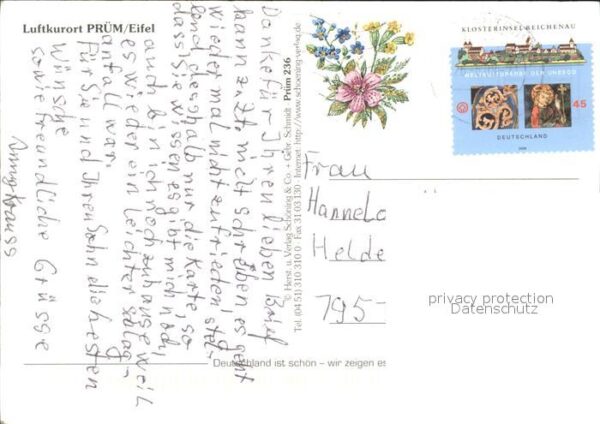 Luftkurort PRÜM/Eifel
Danke für Ihren lieben Brief
kann z.zt. nicht schreiben es geht
wieder mal nicht zufrieden stel-
lend, deshalb nur die Karte, so
dass Sie wissen es gibt mich noch,
auch bin ich noch zuhause weil
es wieder ein leichter schlag-
anfall war.
Für Sie und Ihren Sohn die besten
Wünsche
sowie freundliche Grüsse
Krauss
© Herst. u. Verlag Schöning & Co. + Gebr. Schmidt · Prüm 236
Tel. (04 51) 310 310 0 · Fax 31 03 130 · Internet: http://www.schoening-verlag.de
KLOSTERINSEL REICHENAU
WELTKULTURERBE DER UNESCO
45
DEUTSCHLAND
2008
Frau
Hannelo
Helde
795
privacy protection
Datenschutz
Deutschland ist schön – wir zeigen es